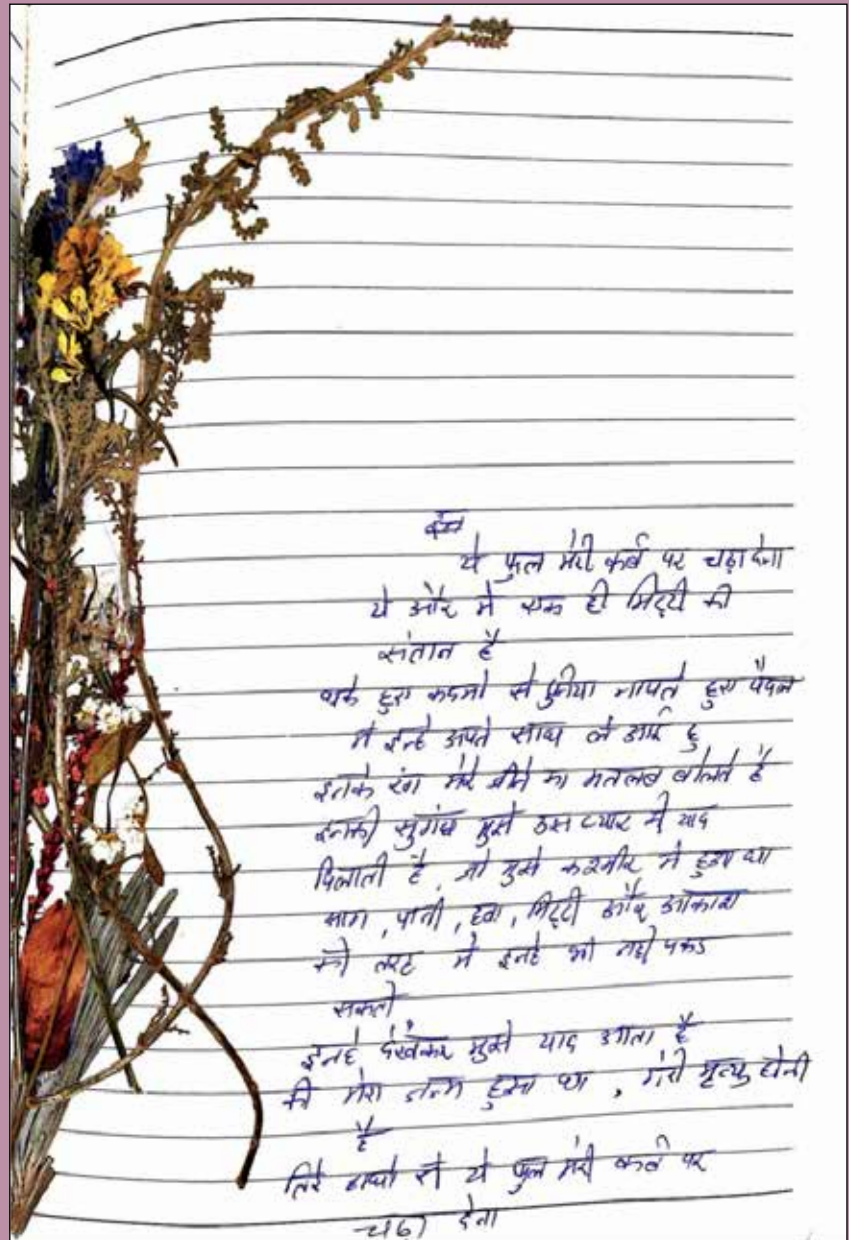 ये फुल मेरी कर्ब पर चढ़ा देना
ये और मे एक ही मिट्टी की
संतान है
थके हुए कदमो से दुनीया नापते हुए पैदल
मे इन्हे अपने साथ ले आई हु
इनके रंग मेरे जीने का मतलब बोलते है
इनकी सुगंध मुझे उस प्यार की याद
दिलाती है, जो मुझे कश्मीर मे हुआ था
आग, पानी, हवा, मिट्टी और आकाश
की तरह मे इन्हे भी नही पकड
सकती
इन्हे देखकर मुझे याद आता है
की मेरा जन्म हुआ था, मेरी मृत्यु होनी
है
हाथो से ये फुल मेरी कर्ब पर
चढा देना